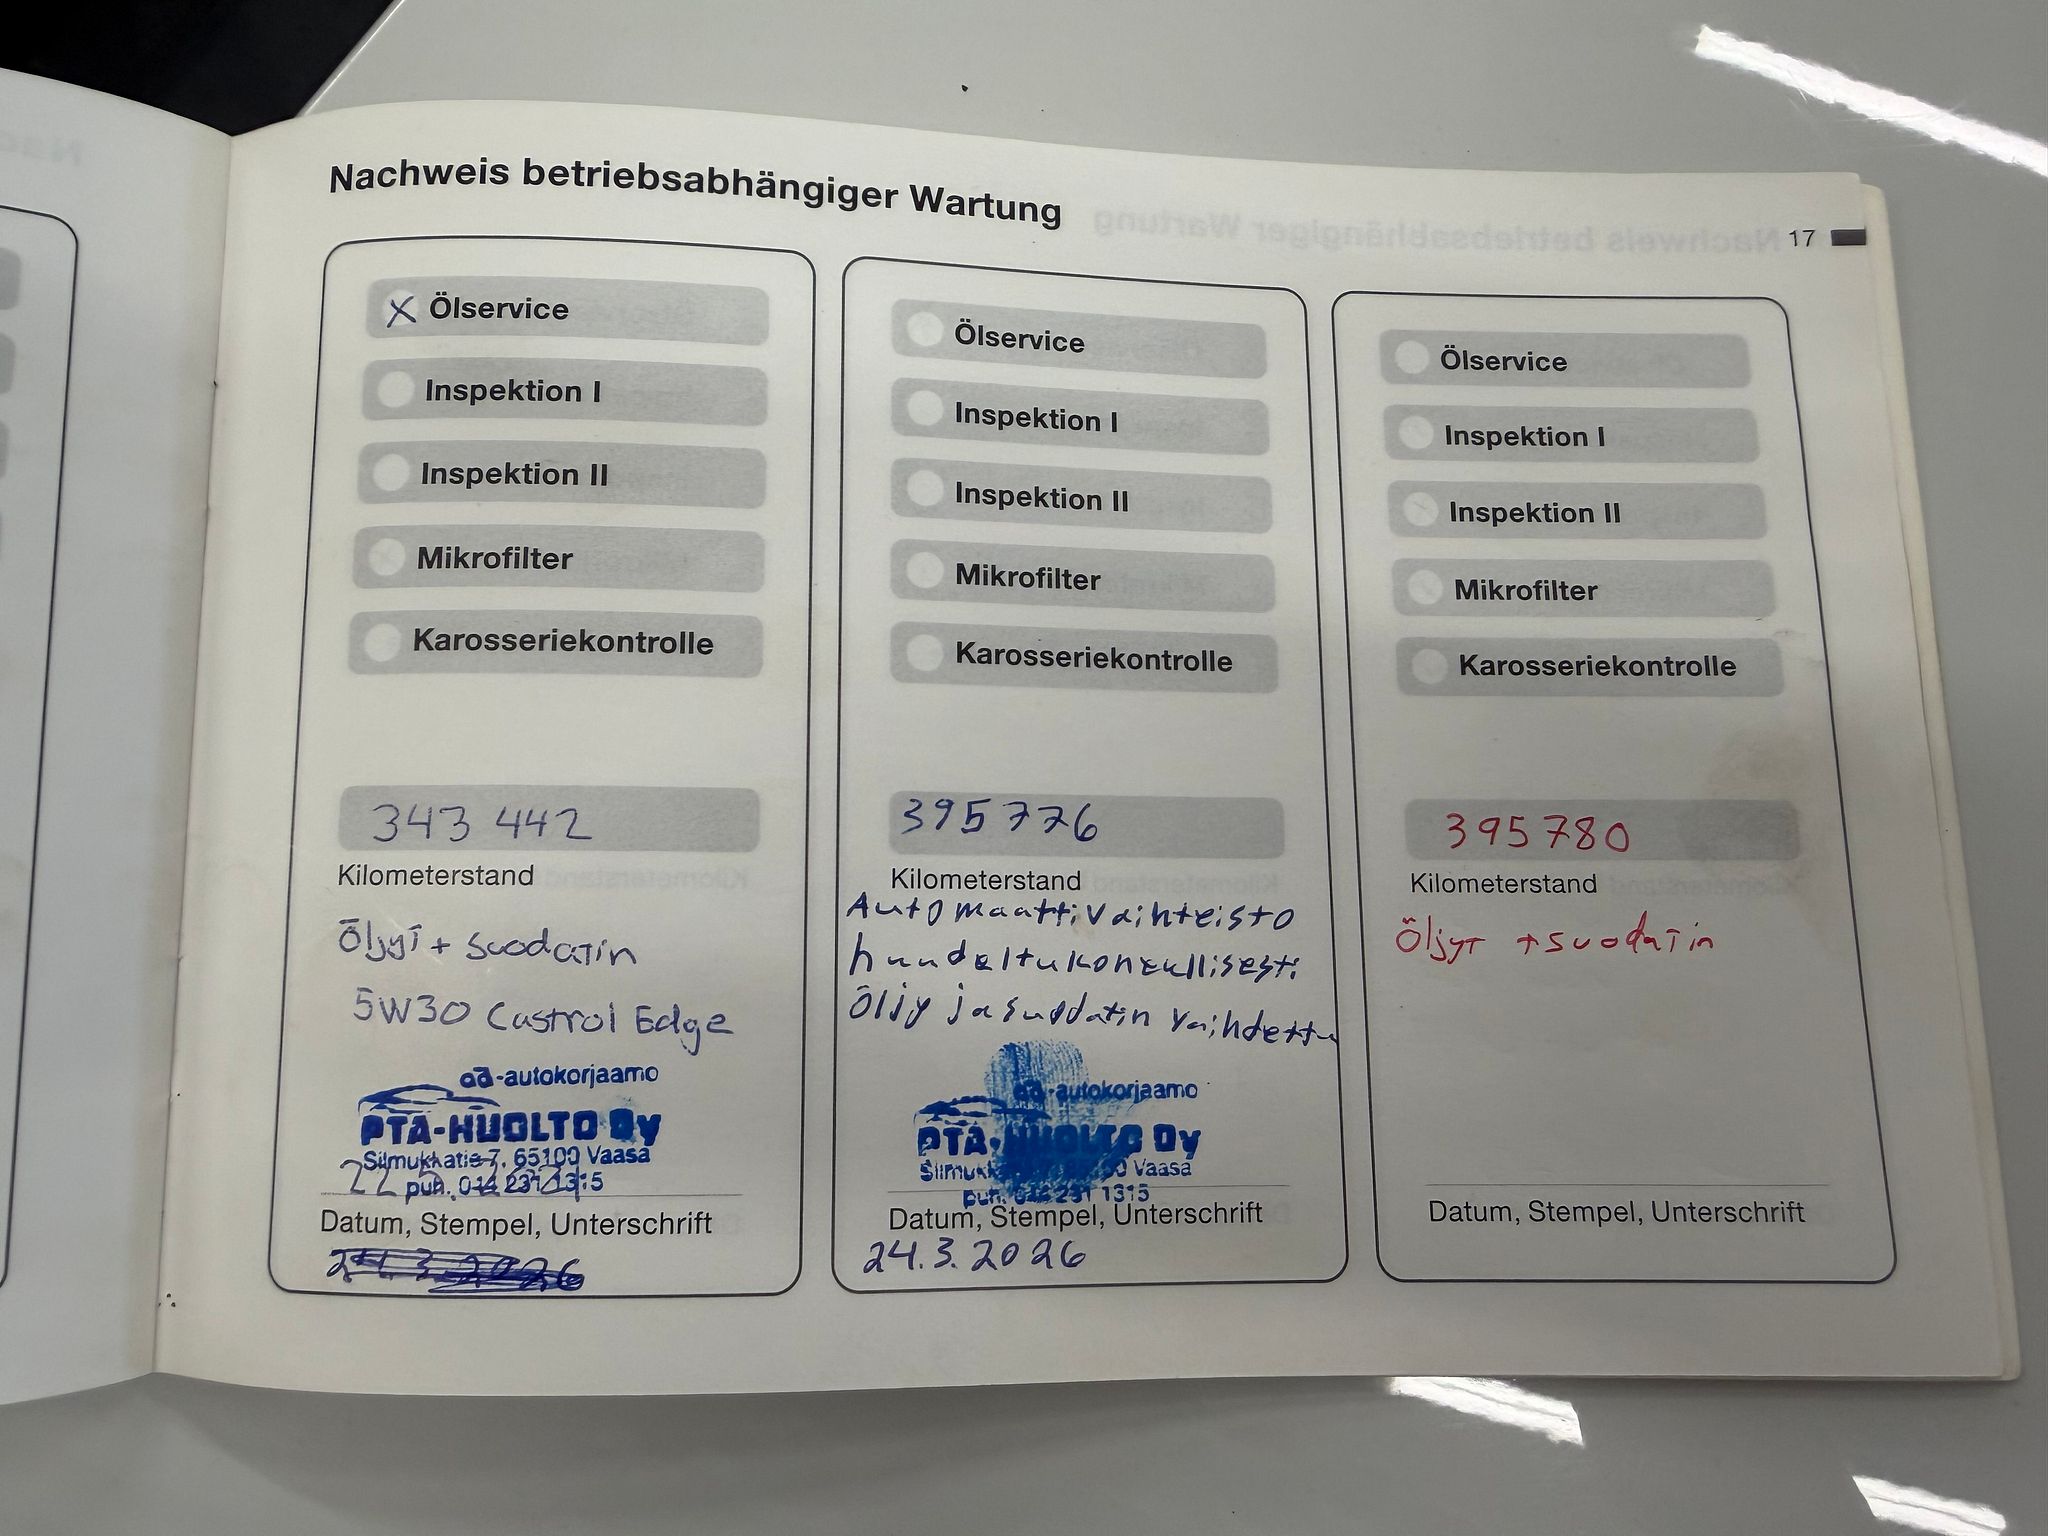 Nachweis betriebsabhängiger Wartung
17
X Ölservice
Inspektion I
Inspektion II
Mikrofilter
Karosseriekontrolle
343 442
Kilometerstand
Öljyt + suodatin
5W30 Castrol Edge
ad-autokorjaamo
PTA-HUOLTO Oy
Silmukkatie 7, 65100 Vaasa
puh.
Datum, Stempel, Unterschrift
24.3.2026
Ölservice
Inspektion I
Inspektion II
Mikrofilter
Karosseriekontrolle
395 776
Kilometerstand
Automaattivaihteisto
huudeltu koneellisesti
Öljy ja suodatin vaihdettu
ad-autokorjaamo
PTA-HUOLTO Oy
Vaasa
puh. 1315
Datum, Stempel, Unterschrift
24.3.2026
Ölservice
Inspektion I
Inspektion II
Mikrofilter
Karosseriekontrolle
395780
Kilometerstand
Öljyt + suodatin
Datum, Stempel, Unterschrift